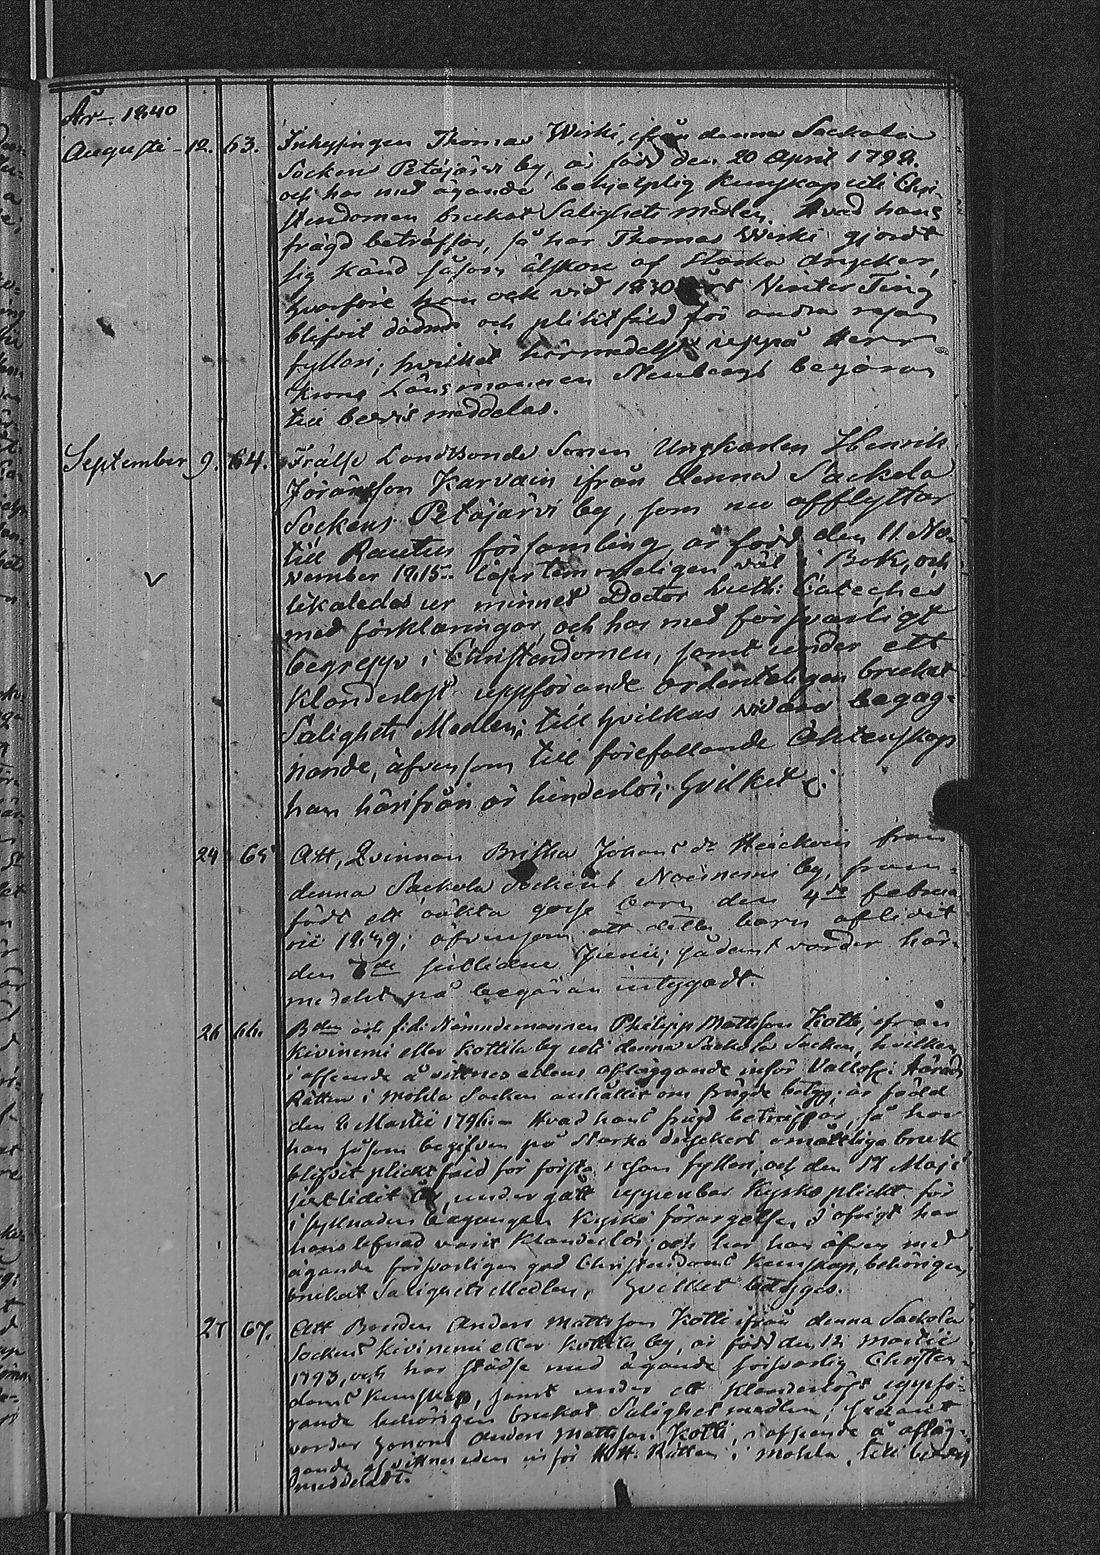 År 1840
Augusti 12. 63. Inhysingen Thomas Wirki, ifrån denna Sackola
Sockens Petäjärvi by, är född den 20 April 1799.
och har med ägande behjelplig kunskap uti Chri-
stendomen brukat Salighets medlen. Hvad hans
frägd beträffar, så har Thomas Wirki gjordt
sig känd såsom älskare af starka drycker,
hvarföre han ock vid 1830 års Vinter Ting
blifvit dömd och pliktfäld för andra resan
fylleri; hvilket härmedelst uppå Herr
Krono Länsmannen begäran
till bevis meddelas.
September 9. 64. Frälse Landbonde Sonen Ungkarlen Henrik
Jöransson Karvain ifrån denna Sackola
Sockens Petäjärvi by, som nu afflyttar
till Rautus församling, är född den 11 No-
vember 1815. läser temmeligen väl i Bok, och
likaledes ur minnet Doctor Luth: Cateches
med förklaringar, och har med försvarligt
begrepp i Christendomen, samt under ett
klanderlöst uppförande ordenteligen brukat
Salighets Medlen; till hvilkas vidare begag-
nande, äfvensom till förefallande Äktenskap
han härifrån är hinderlös; hvilket
24 65 Att, Qvinnan Britha Johans dr från
denna Sackola Sockens Noisniemi by, fram-
födt ett oäkta gosse barn den 4de februa-
rii 1839; äfvensom att detta barn aflidit
den 7de sistlidne Junii; sådant varder här-
medelst på begäran intygadt.
26 66. Bden och f.d. Nämndemannen Philipp Mattsson Kotti, ifrån
Kiviniemi eller Kottila by uti denna Sackola Socken, hvilken
i afseende å vittnes edens afläggande inför Vällofl: Härads
Rätten i Mohla Socken anhållit om frägde betyg; är född
den 6 Martii 1796. Hvad hans frägd beträffar, så har
han såsom begifven på starka dryckers omåttliga bruk
blifvit plicktfäld för första resan fylleri, och den 17 Maji
sistlidet år, undergått uppenbar Kyrko plickt för
i fyllnaden begången Kyrko förargelse. I öfrigt har
hans lefnad varit klanderlös; och har han äfven med
ägande försvarligen god Christendoms kunskap, behörigen
brukat Salighets Medlen, hvilket betyges.
27 67. Att Bonden Anders Mattsson Kotti ifrån denna Sackola
Sockens Kiviniemi eller Kottila by, är född den 12 Martii
1793, och har städse med ägande försvarlig Christen-
doms kunskap, samt under ett klanderlöst uppfö-
rande behörigen brukat Salighetsmedlen; sådant
varder honom Anders Mattsson Kotti, i afseende å afläg-
gande af vittneseden inför Rätten i Mohla, till bevis
meddeladt.